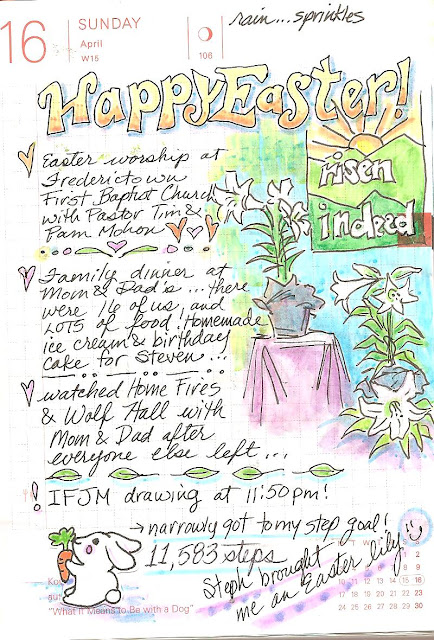 16 SUNDAY
April
W15
106
rain...sprinkles
Happy Easter!
Easter worship at
Fredericktown
First Baptist Church
with Pastor Tim &
Pam Mohon
risen
indeed
Family dinner at
Mom & Dad's... there
were 16 of us, and
LOTS of food! Homemade
ice cream & birthday
cake for Steven...
watched Home Fires
& Wolf Hall with
Mom & Dad after
everyone else left...
! IFJM drawing at 11:50pm!
→ narrowly got to my step goal!
11,583 steps
Steph brought
me an Easter lily
"What It Means to Be with a Dog"
2
9
10 11 12 13 14 15 16
17 18 19 20 21 22 23
24 25 26 27 28 29 30